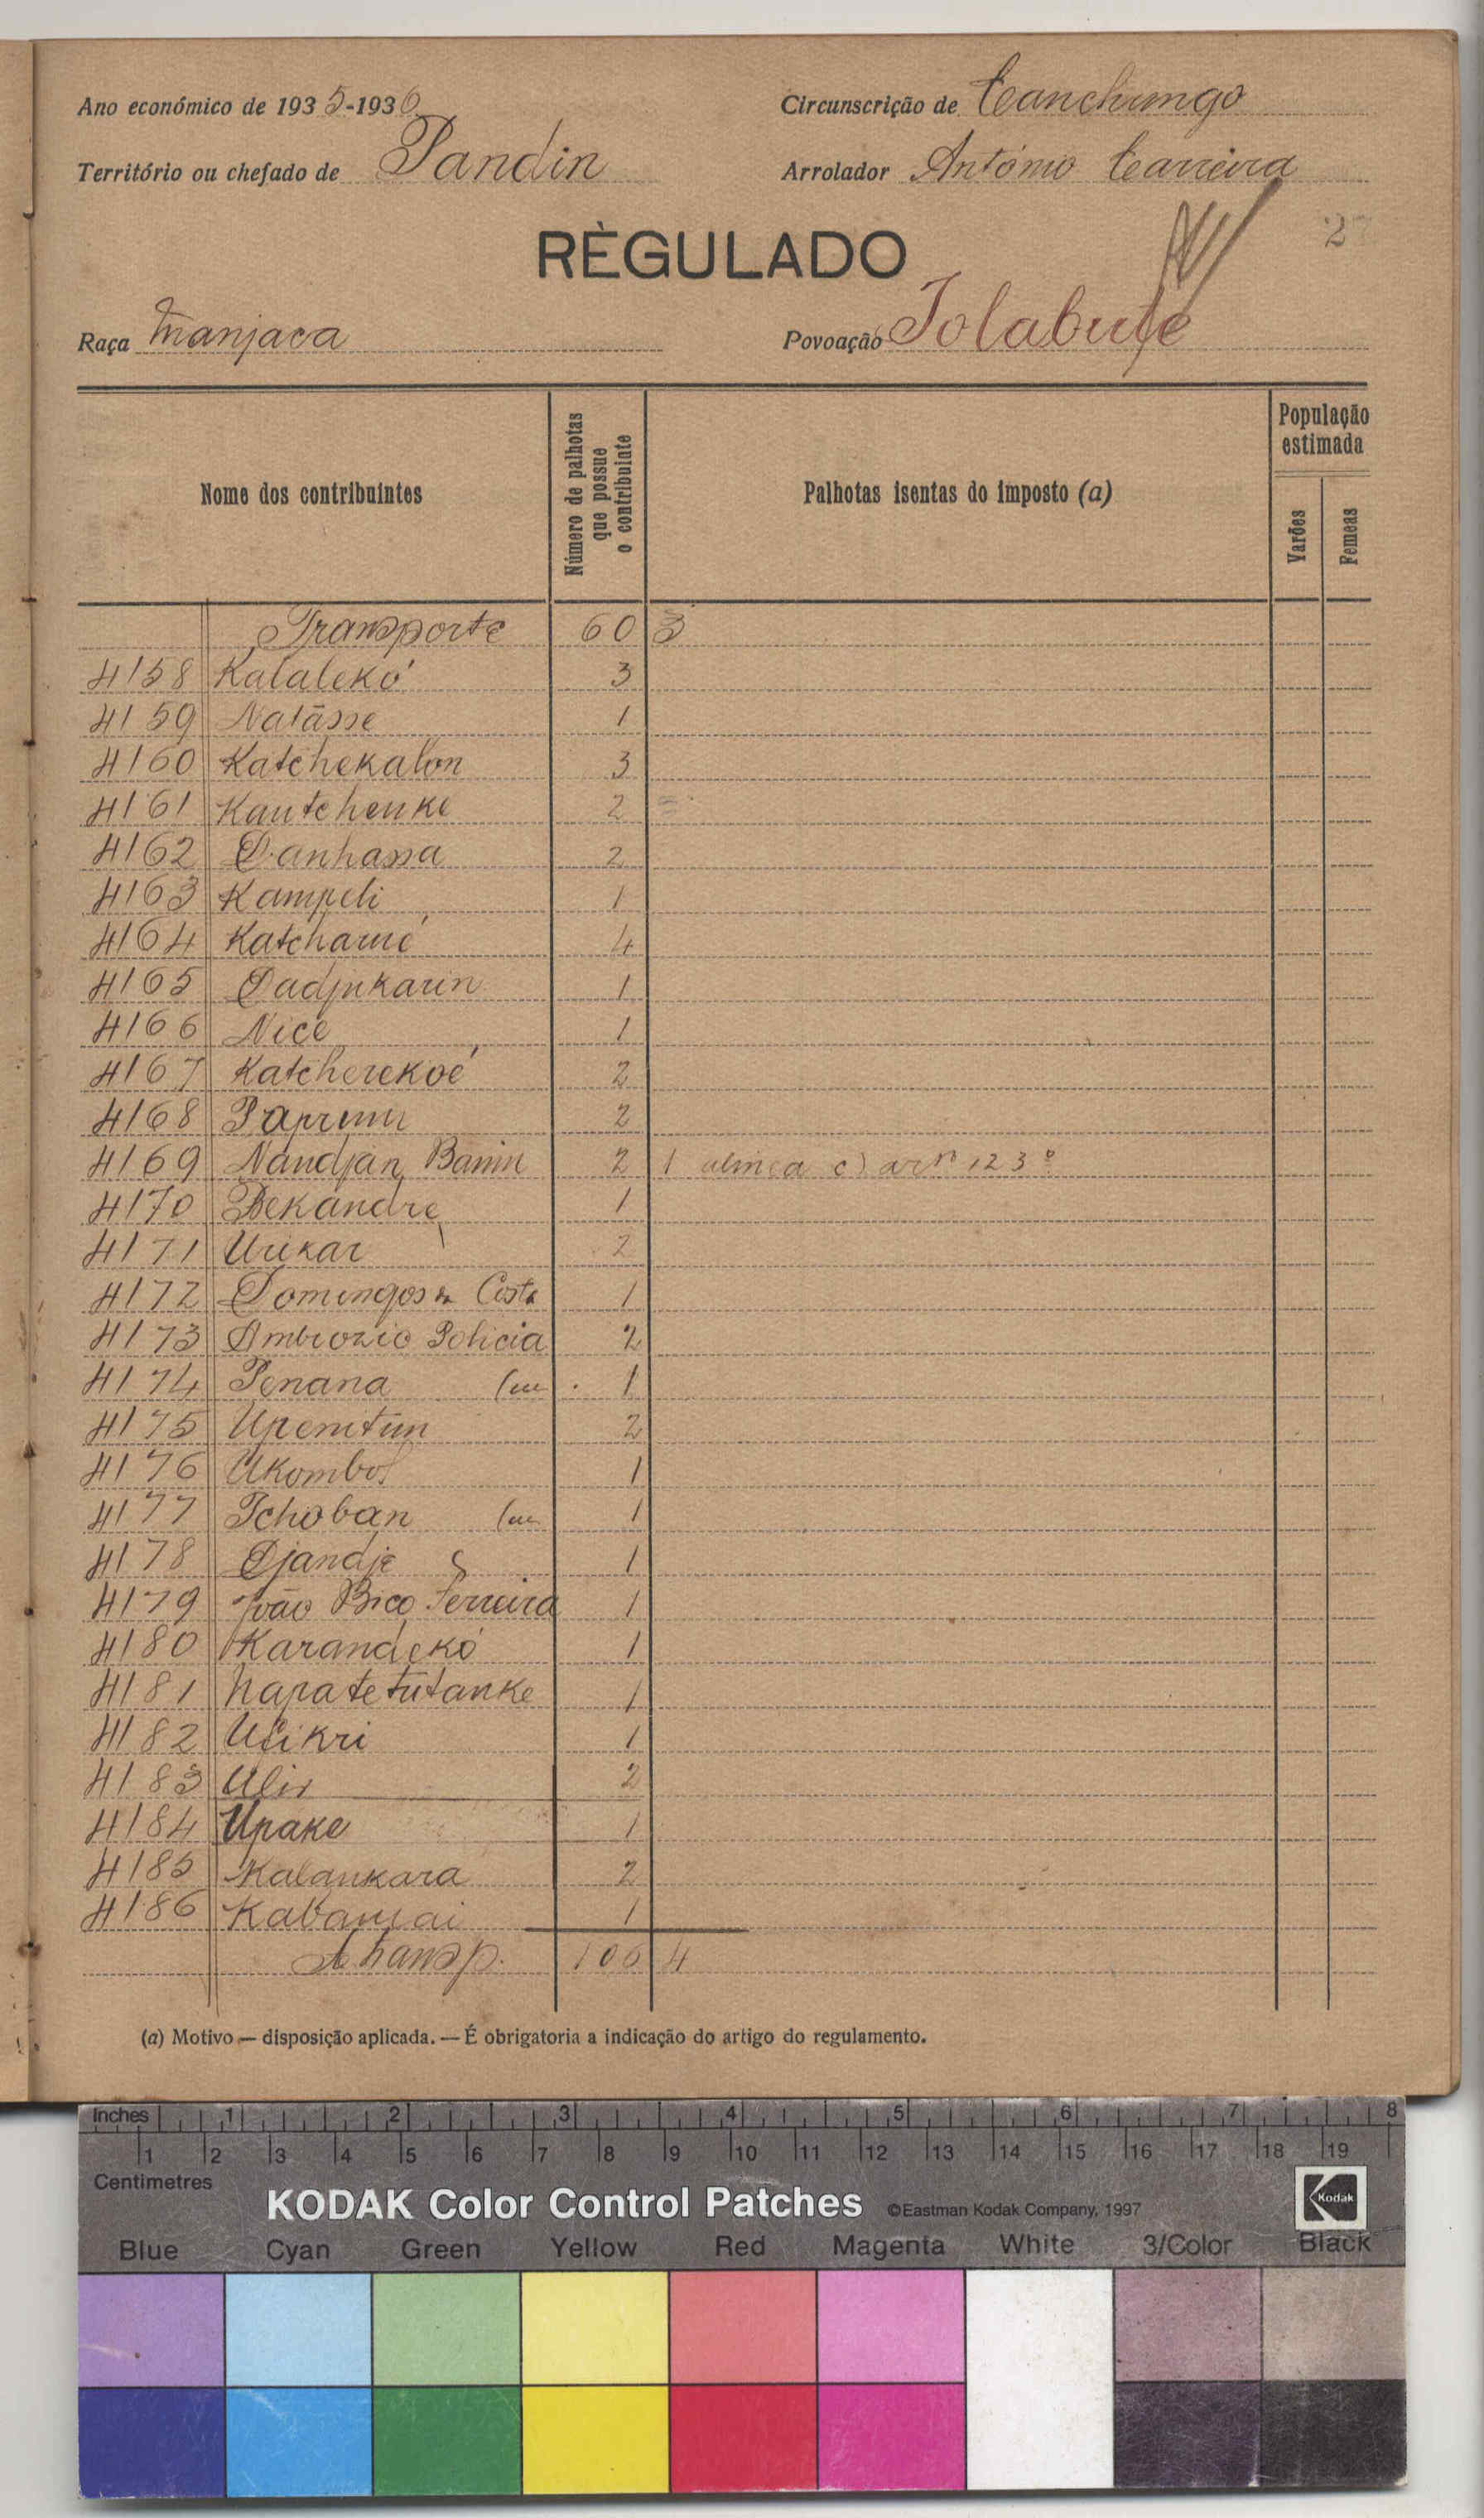 Ano económico de 1935-1936 Circunscrição de Canchungo
Território ou chefado de Pandin Arrolador António Carreira
27
RÈGULADO
Raça Manjaca Povoação
Nome dos contribuintes Número de palhotas que possue o contribuinte Palhotas isentas do imposto (a) População estimada
Varões Femeas
Transporte 60 3
4158 Kalalekó 3
4159 Natásse 1
4160 Katchekalon 3
4161 Kautchenke 2
4162 Danhassa 2
4163 Kampeli 1
4164 4
4165 1
4166 Nice 1
4167 Katcherekoé 2
4168 2
4169 Nandjan 2 1 alinea c) artº 123º
4170 Bekandre 1
4171 Urikar 2
4172 Domingos da Costa 1
4173 Ambrozio Policia 2
4174 Penana 1
4175 2
4176 1
4177 Tchoban 1
4178 Djandje 1
4179 João Bico Ferreira 1
4180 Karandekó 1
4181 1
4182 1
4183 2
4184 Upake 1
4185 Kalankara 2
4186 1
A transp. 106 4
(a) Motivo — disposição aplicada. — É obrigatoria a indicação do artigo do regulamento.
Inches 1 2 3 4 5 6 7 8
1 2 3 4 5 6 7 8 9 10 11 12 13 14 15 16 17 18 19
Centimetres
KODAK Color Control Patches ©Eastman Kodak Company, 1997 Kodak
Blue Cyan Green Yellow Red Magenta White 3/Color Black